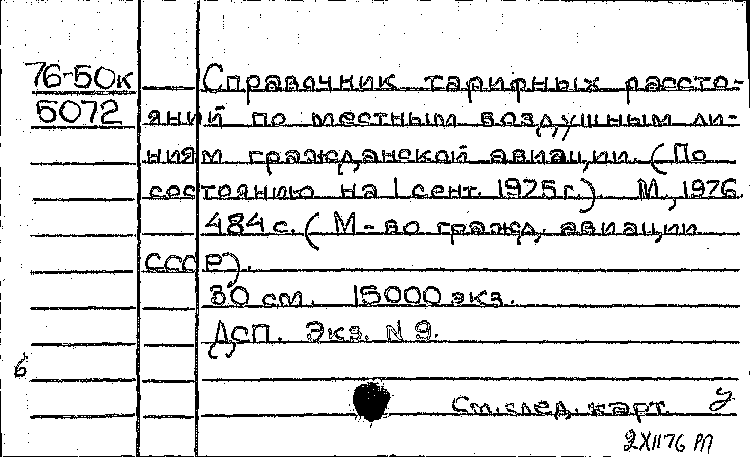 76-50к Справочник тарифных рассто-
5072 яний по местным воздушным ли-
ниям гражданской авиации. (По
состоянию на 1 сент. 1975 г.). М., 1976.
484 с. (М-во гражд. авиации
СССР).
30 см. 15000 экз.
ДСП. Экз. N 9.
б
См. след. карт.
2 XII 76 РП